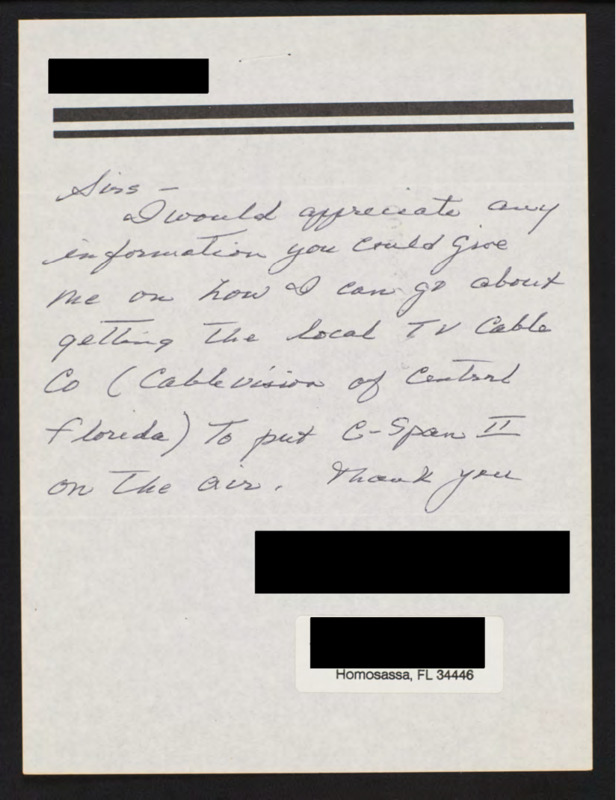 Sirs –
I would appreciate any
information you could give
me on how I can go about
getting the local TV Cable
Co (Cablevision of Central
Florida) to put C-Span II
on the air. Thank you
Homosassa, FL 34446